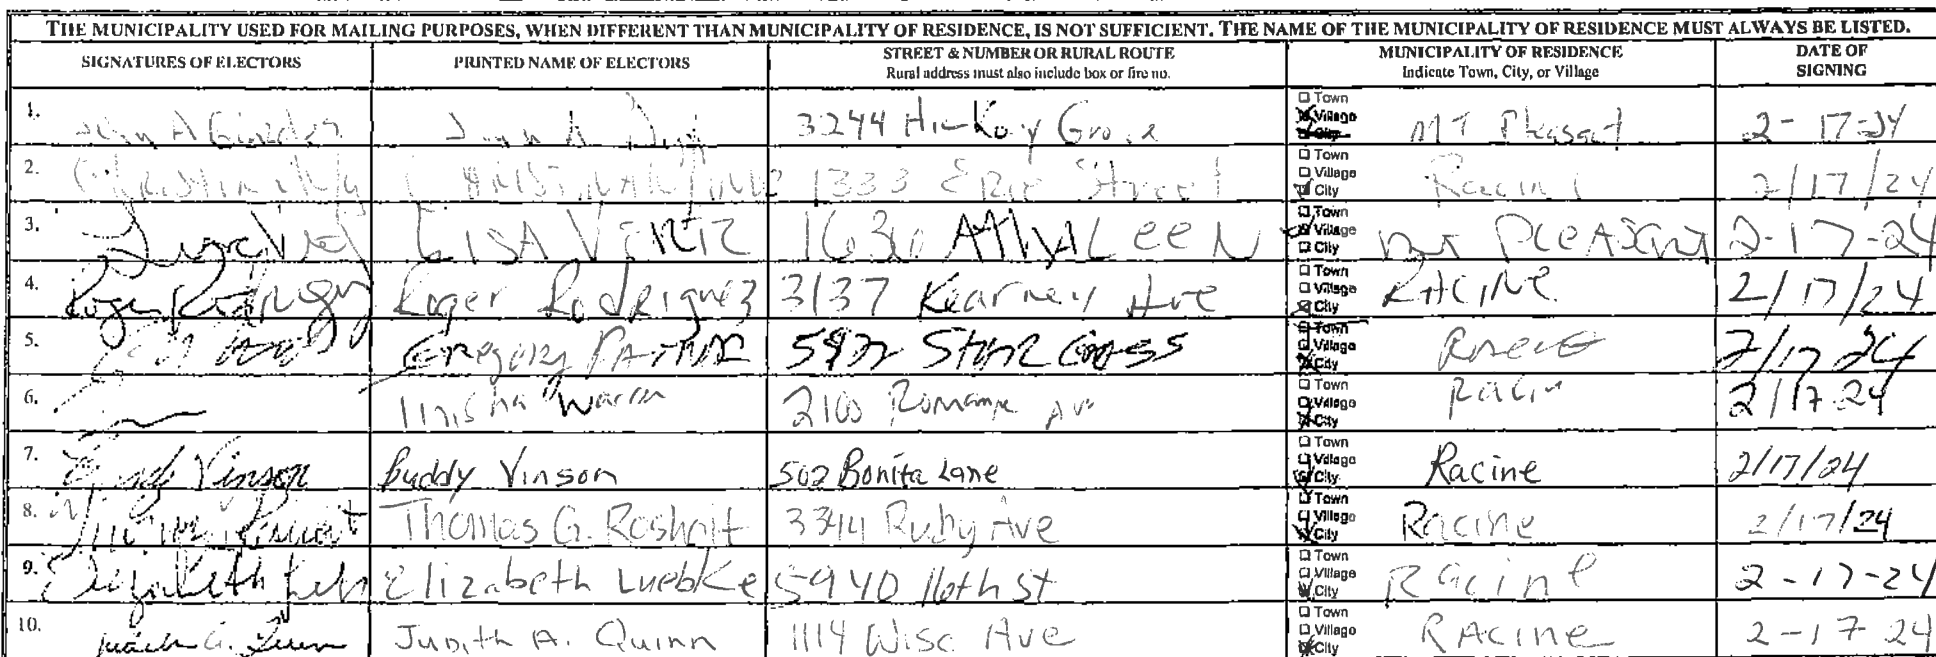 THE MUNICIPALITY USED FOR MAILING PURPOSES, WHEN DIFFERENT THAN MUNICIPALITY OF RESIDENCE, IS NOT SUFFICIENT. THE NAME OF THE MUNICIPALITY OF RESIDENCE MUST ALWAYS BE LISTED.
SIGNATURES OF ELECTORS PRINTED NAME OF ELECTORS STREET & NUMBER OR RURAL ROUTE MUNICIPALITY OF RESIDENCE DATE OF
Rural address must also include box or fire no. Indicate Town, City, or Village SIGNING
1. 3244 Hickory Grove Town Village City MT Pleasant 2-17-24
2. 1333 Erie Street Town Village City Racine 2/17/24
3. LISA 1636 Town Village City MT PLEASANT 2-17-24
4. Roger Rodriguez Roger Rodriguez 3137 Kearney Ave Town Village City RACINE 2/17/24
5. Gregory Town Village City 2/17 24
6. Warren 2100 Romayne Av Town Village City Racin 2/17 24
7. Buddy Vinson Buddy Vinson 502 Bonita Lane Town Village City Racine 2/17/24
8. Thomas G. 3344 Ruby Ave Town Village City Racine 2/17/24
9. Elizabeth Elizabeth Luebke 5940 16th St Town Village City Racine 2-17-24
10. Judith A. Quinn Judith A. Quinn 1114 Wisc Ave Town Village City RACine 2-17 24